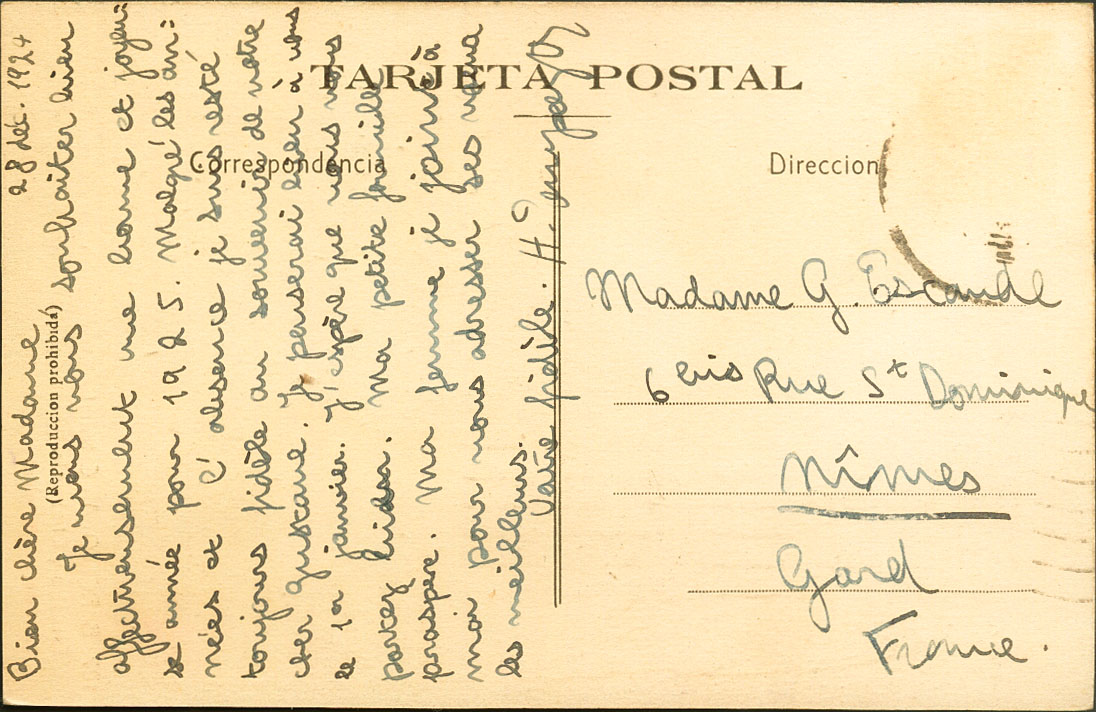 TARJETA POSTAL
Correspondencia
Direccion
(Reproduccion prohibida)
28 déc. 1924
Bien chère Madame
Je viens vous souhaiter bien
affectueusement une bonne et joyeu=
se année pour 1925. Malgré les an=
nées et l'absence je suis resté
toujours fidèle au souvenir de notre
cher Gustave. Je penserai bien à vous
le 1er janvier. J'espère que vous vous
portez bien. Ma petite famille
prospère. Ma femme se joint à
moi pour vous adresser ses vœux
les meilleurs.
Votre fidèle. H.
Madame G. Escande
6 bis Rue St Dominique
Nîmes
Gard
France.